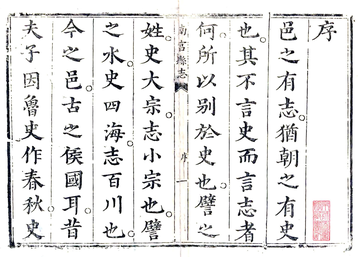 序
邑之有志。猶朝之有史
也。其不言史而言志者
何所以别於史也。譬之
南宫縣志
序
一
姓。史大宗。志小宗也。譬
之水。史四海。志百川也。
今之邑。古之侯國耳。昔
夫子因魯史作春秋。史